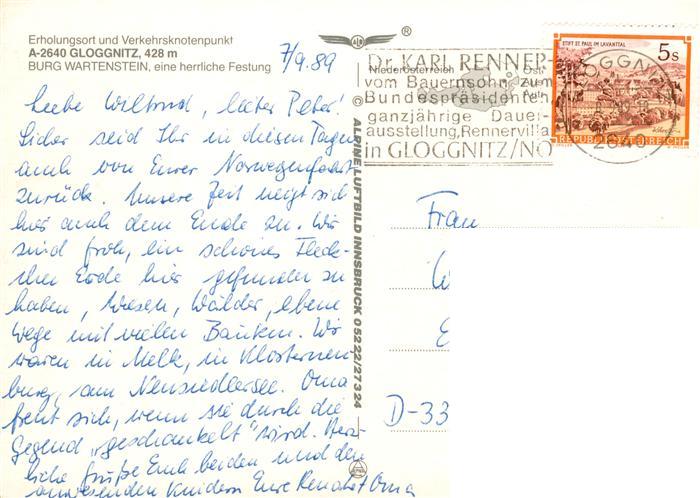 Erholungsort und Verkehrsknotenpunkt
A-2640 GLOGGNITZ, 428 m
BURG WARTENSTEIN, eine herrliche Festung
7/9.89
Liebe Wiltrud, lieber Peter!
Sicher seid Ihr in diesen Tagen
auch von Eurer Norwegenfahrt
zurück. Unsere Zeit neigt sich
hier auch dem Ende zu. Wir
sind froh, ein schönes Fleck-
chen Erde hier gefunden zu
haben, Wiesen, Wälder, ebene
Wege mit vielen Bänken. Wir
waren in Melk, in Klosterneu-
burg, am Neusiedlersee. Oma
freut sich, wenn sie durch die
Gegend „geschaukelt" wird. Herz-
liche Grüße Euch beiden und den
anwesenden Kindern Eure Renate + Oma
® 
© ALPINE LUFTBILD INNSBRUCK 05222/27324
Dr. KARL RENNER-
vom Bauernsohn zum
Bundespräsidenten
ganzjährige Dauer-
ausstellung, Rennervilla
in GLOGGNITZ/NÖ
Niederösterreich
STIFT ST. PAUL IM LAVANTTAL
5s
REPUBLIK ÖSTERREICH
GLOGGNITZ
2640
Frau
W
E
D-33